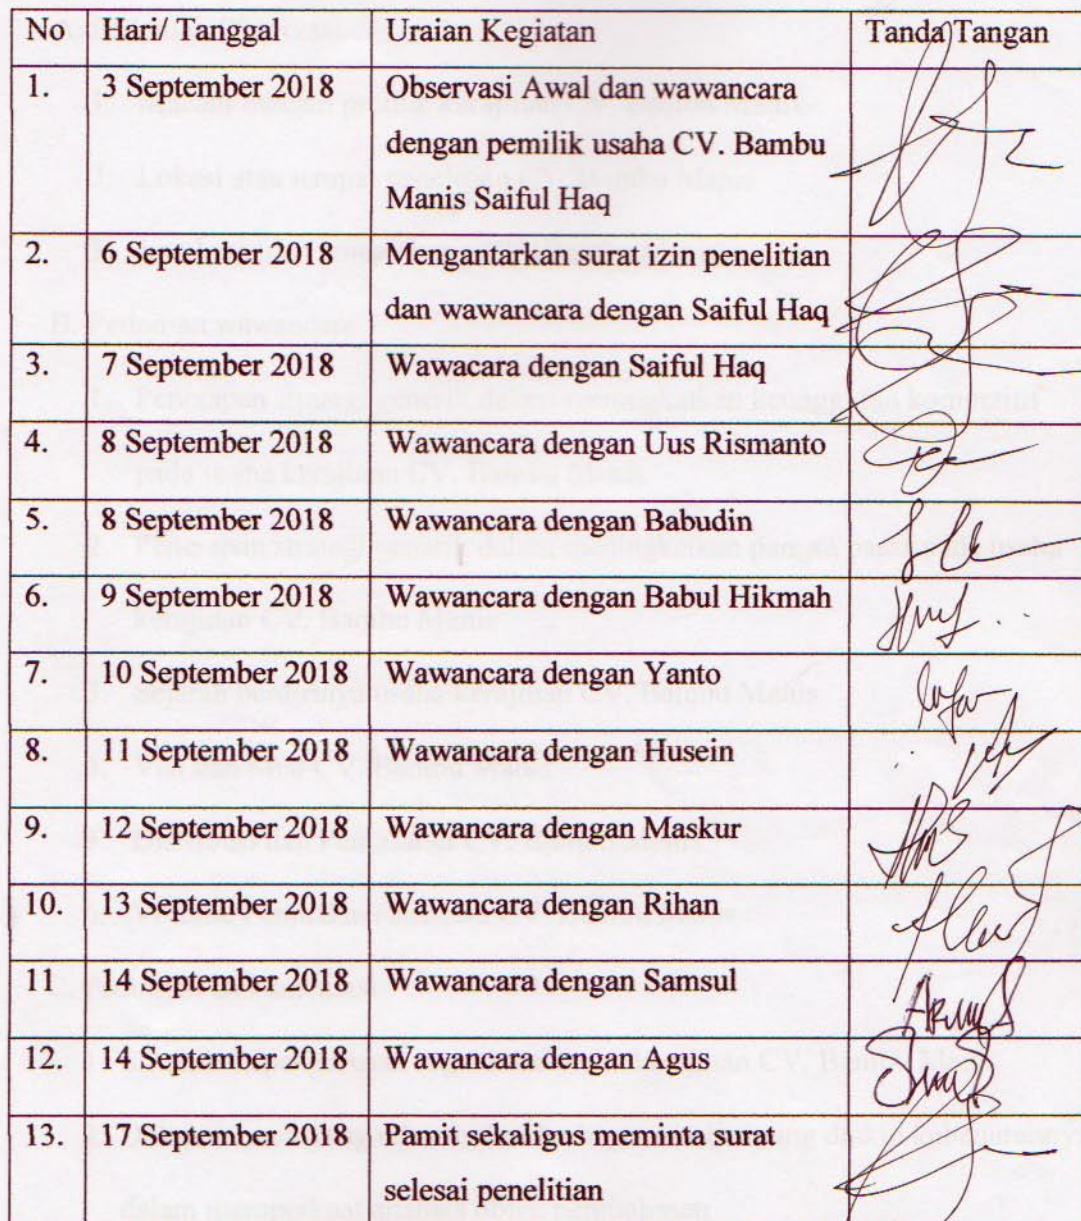 No Hari/ Tanggal Uraian Kegiatan Tanda Tangan
1. 3 September 2018 Observasi Awal dan wawancara
dengan pemilik usaha CV. Bambu
Manis Saiful Haq
2. 6 September 2018 Mengantarkan surat izin penelitian
dan wawancara dengan Saiful Haq
3. 7 September 2018 Wawacara dengan Saiful Haq
4. 8 September 2018 Wawancara dengan Uus Rismanto
5. 8 September 2018 Wawancara dengan Babudin
6. 9 September 2018 Wawancara dengan Babul Hikmah
7. 10 September 2018 Wawancara dengan Yanto
8. 11 September 2018 Wawancara dengan Husein
9. 12 September 2018 Wawancara dengan Maskur
10. 13 September 2018 Wawancara dengan Rihan
11 14 September 2018 Wawancara dengan Samsul
12. 14 September 2018 Wawancara dengan Agus
13. 17 September 2018 Pamit sekaligus meminta surat
selesai penelitian